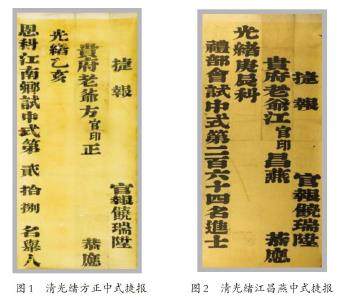 捷報 官報饒瑞陞
貴府老爺方官印正 恭應
光緒乙亥
恩科江南鄉試中式第 貳拾捌 名舉人
图1 清光绪方正中式捷报
捷報 官報饒瑞陞
貴府老爺江官印昌燕 恭應
光緒庚辰科
禮部會試中式第二百六十四名進士
图2 清光绪江昌燕中式捷报